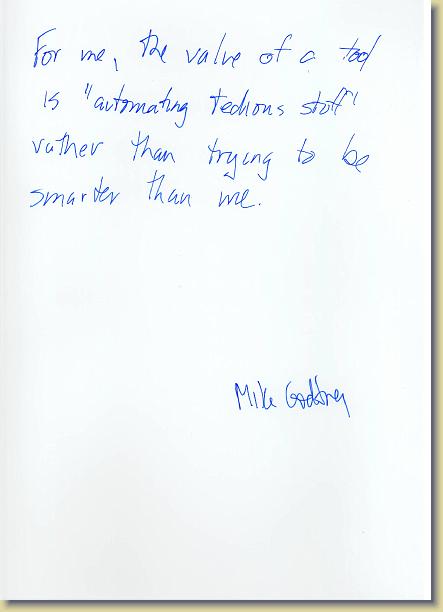 For me, the value of a tool
is "automating tedious stuff"
rather than trying to be
smarter than me.
Mike Godfrey